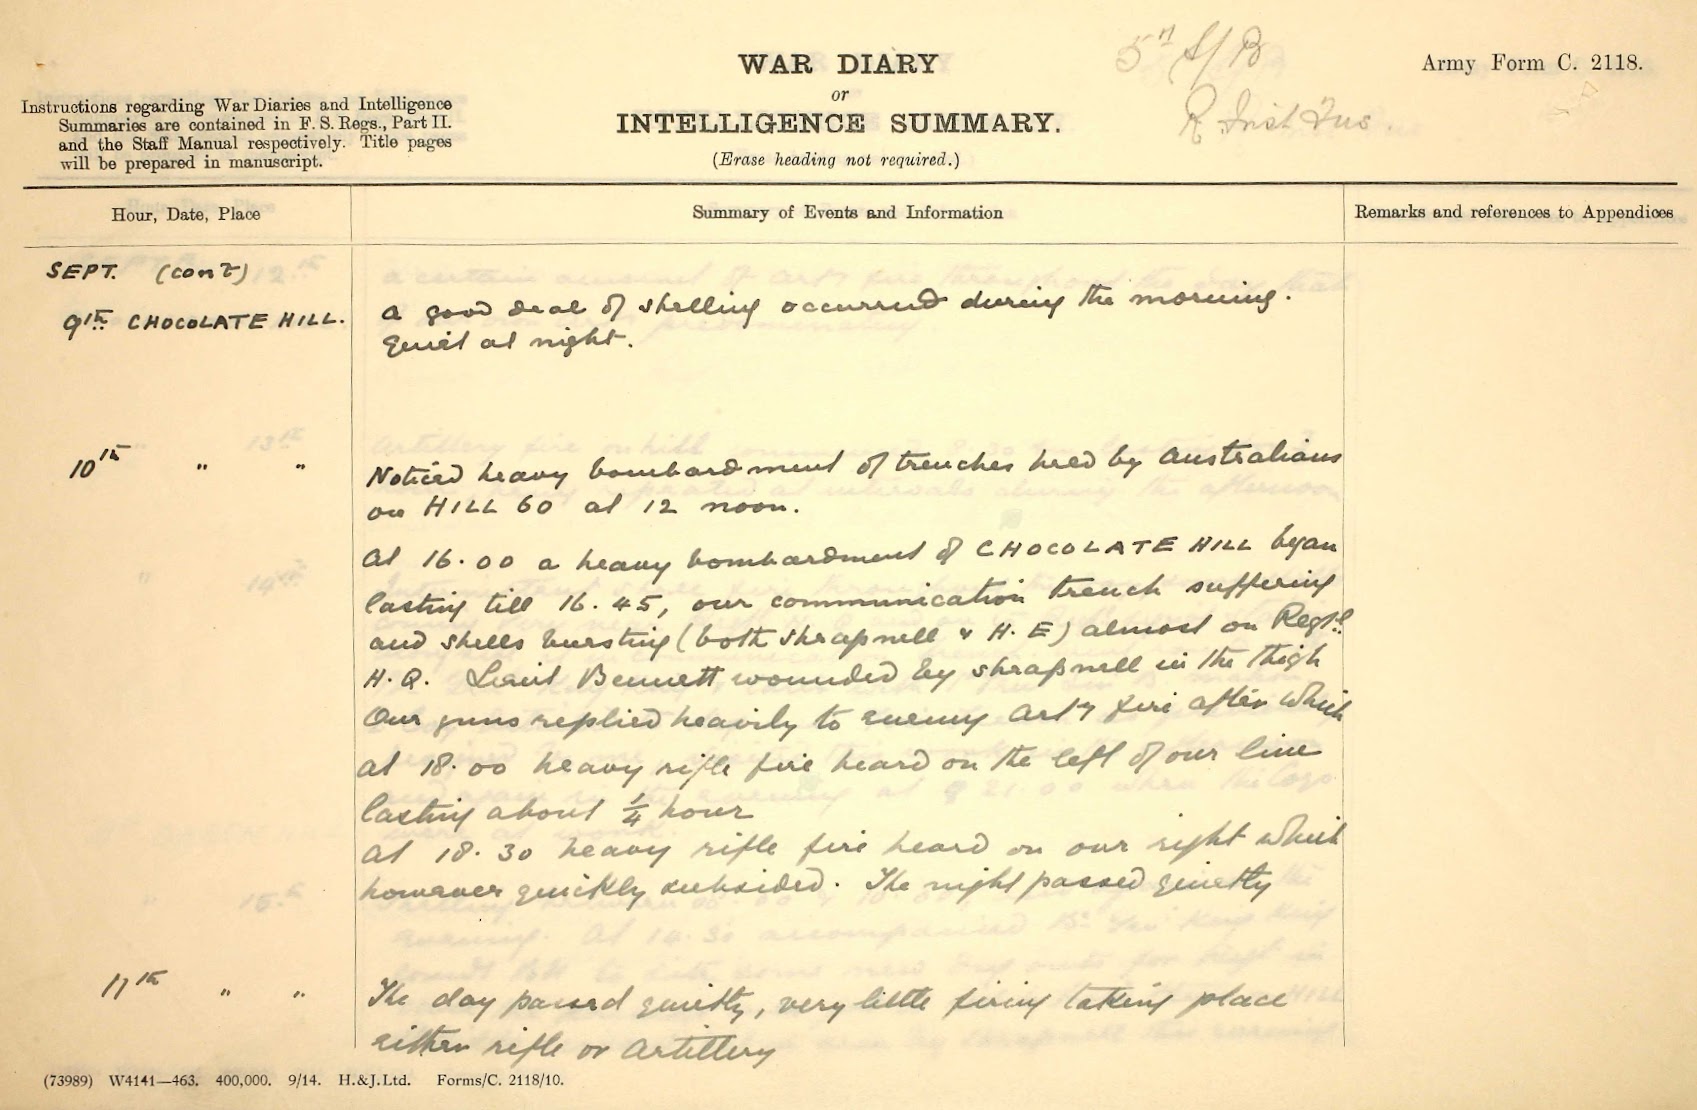 5th S/B
R. Irish Fus.
WAR DIARY
or
INTELLIGENCE SUMMARY.
(Erase heading not required.)
Army Form C. 2118.
Instructions regarding War Diaries and Intelligence
Summaries are contained in F. S. Regs., Part II.
and the Staff Manual respectively. Title pages
will be prepared in manuscript.
Hour, Date, Place
Summary of Events and Information
Remarks and references to Appendices
SEPT. (cont)
9th CHOCOLATE HILL.
A good deal of shelling occurred during the morning.
Quiet at night.
10th " "
Noticed heavy bombardment of trenches held by Australians
on HILL 60 at 12 noon.
At 16.00 a heavy bombardment of CHOCOLATE HILL began
lasting till 16.45, our communication trench suffering
and shells bursting (both shrapnell & H.E) almost on Regtl.
H.Q. Lieut Bennett wounded by shrapnell in the thigh
Our guns replied heavily to enemy Arty fire after which
at 18.00 heavy rifle fire heard on the left of our line
lasting about ¼ hour
At 18.30 heavy rifle fire heard on our right which
however quickly subsided. The night passed quietly
11th " "
The day passed quietly, very little firing taking place
either rifle or artillery
(73989) W4141—463. 400,000. 9/14. H.&J.Ltd. Forms/C. 2118/10.